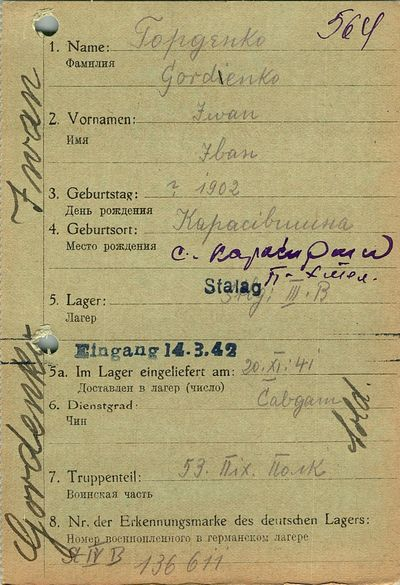 564
1. Name: Гордієнко
Фамилия
Gordienko
2. Vornamen: Iwan
Имя
Іван
3. Geburtstag: ? 1902
День рождения
4. Geburtsort: Карасівшина
Место рождения
с.
Stalag III B
5. Lager:
Лагер
Eingang 14.3.42
5a. Im Lager eingeliefert am: 20. XI. 41
Доставлен в лагер (число)
6. Dienstgrad:
Чин
Sold.
7. Truppenteil: 53. Піх. Полк
Воинская часть
8. Nr. der Erkennungsmarke des deutschen Lagers:
Номер военнопленного в германском лагере
St IV B 136 611
Iwan
Gordienko